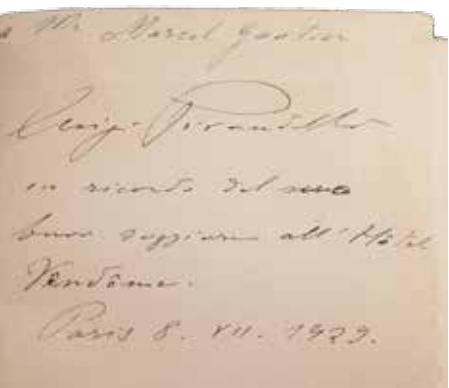 a Mr. Marcel Gautier
Luigi Pirandello
in ricordo del suo
buon soggiorno all'Hôtel
Vendôme.
Paris 8. VII. 1929.